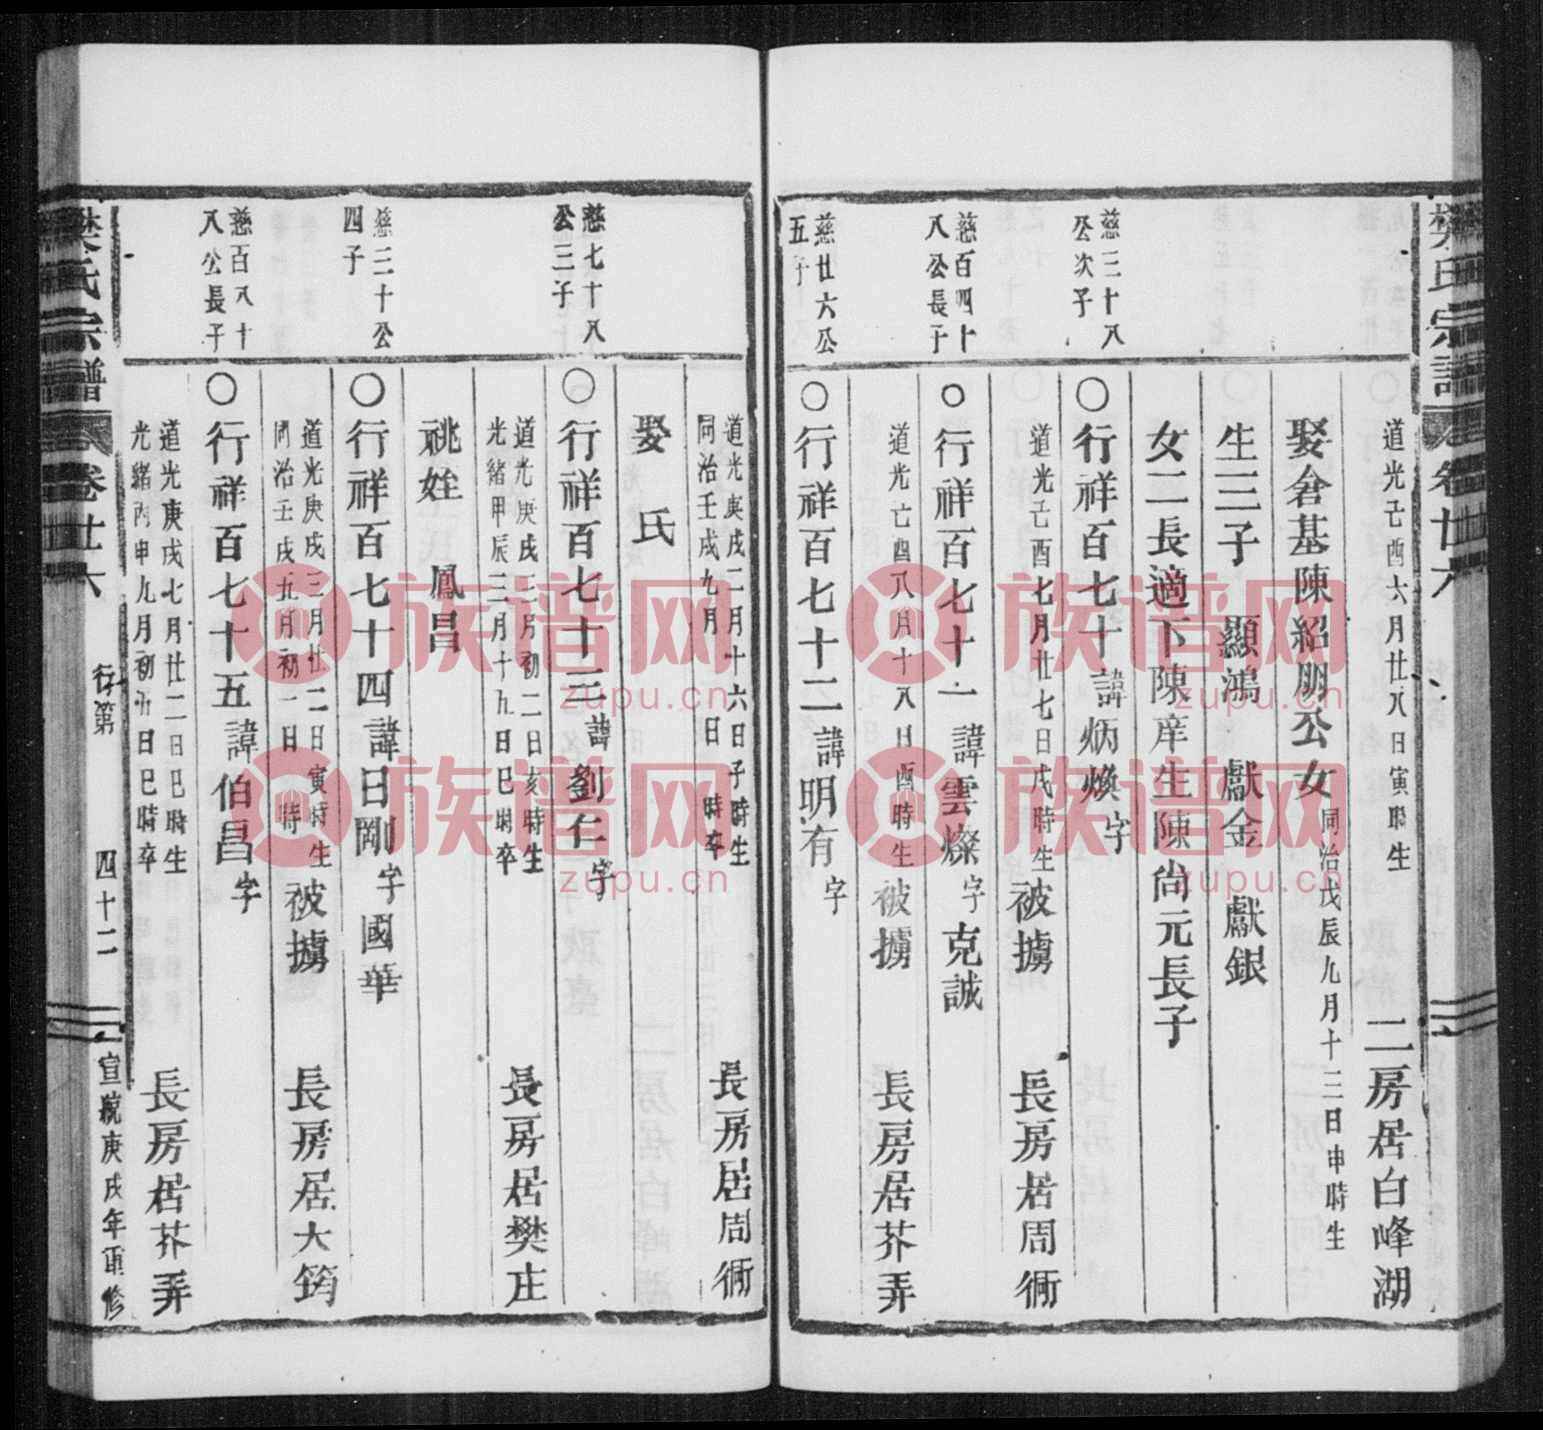 樊氏宗譜
卷廿六
道光己酉六月廿八日寅時生
二房居白峰湖
娶倉基陳紹朋公女
同治戊辰九月十三日申時生
生三子 顯鴻 獻金 獻銀
女二長適下陳庠生陳尚元長子
慈三十八公次子
○行祥百七十諱炳煥字
道光己酉七月廿七日戌時生
被擄
長房居周衕
慈百四十八公長子
○行祥百七十一諱雲燦字克誠
道光己酉八月十八日酉時生
被擄
長房居芥弄
慈廿六公五子
○行祥百七十二諱明有字
道光庚戌二月十六日子時生
同治壬戌九月 日 時卒
長房居周衕
娶 氏
慈七十八公三子
○行祥百七十三諱劉仁字
道光庚戌三月初二日亥時生
光緒甲辰三月十九日巳時卒
長房居樊庄
祧姪 鳳昌
慈三十公四子
○行祥百七十四諱日剛字國華
道光庚戌三月廿二日寅時生
同治壬戌五月初一日 時
被擄
長房居大筠
慈百八十八公長子
○行祥百七十五諱伯昌字
道光庚戌七月廿二日巳時生
光緒丙申九月初六日巳時卒
長房居芥弄
樊氏宗譜
卷廿六
行第
四十二
宣統庚戌年重修
族谱网
zupu.cn
族谱网
zupu.cn
族谱网
zupu.cn
族谱网
zupu.cn